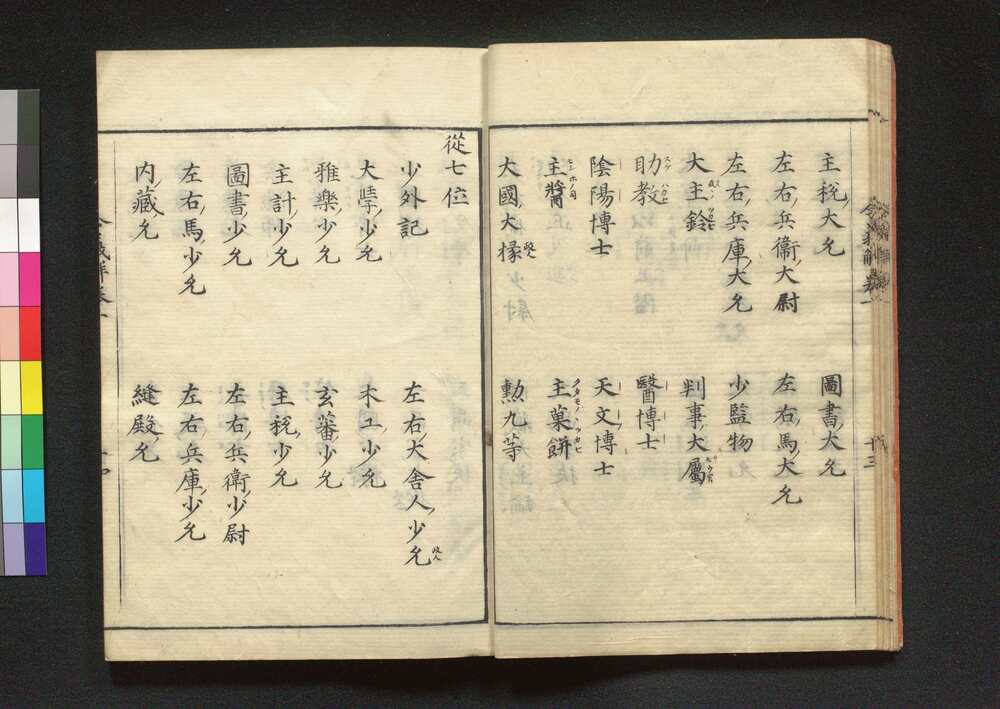 主稅大允
圖書大允
左右兵衞大尉
左右馬大允
左右兵庫大允
少監物
大主鈴
判事大屬
助教
醫博士
陰陽博士
天文博士
主醬
主菓餅
大國大掾
勲九等
十三
從七位
少外記
左右大舍人少允
大學少允
木工少允
雅樂少允
玄蕃少允
主計少允
主稅少允
圖書少允
左右兵衞少尉
左右馬少允
左右兵庫少允
內藏允
縫殿允